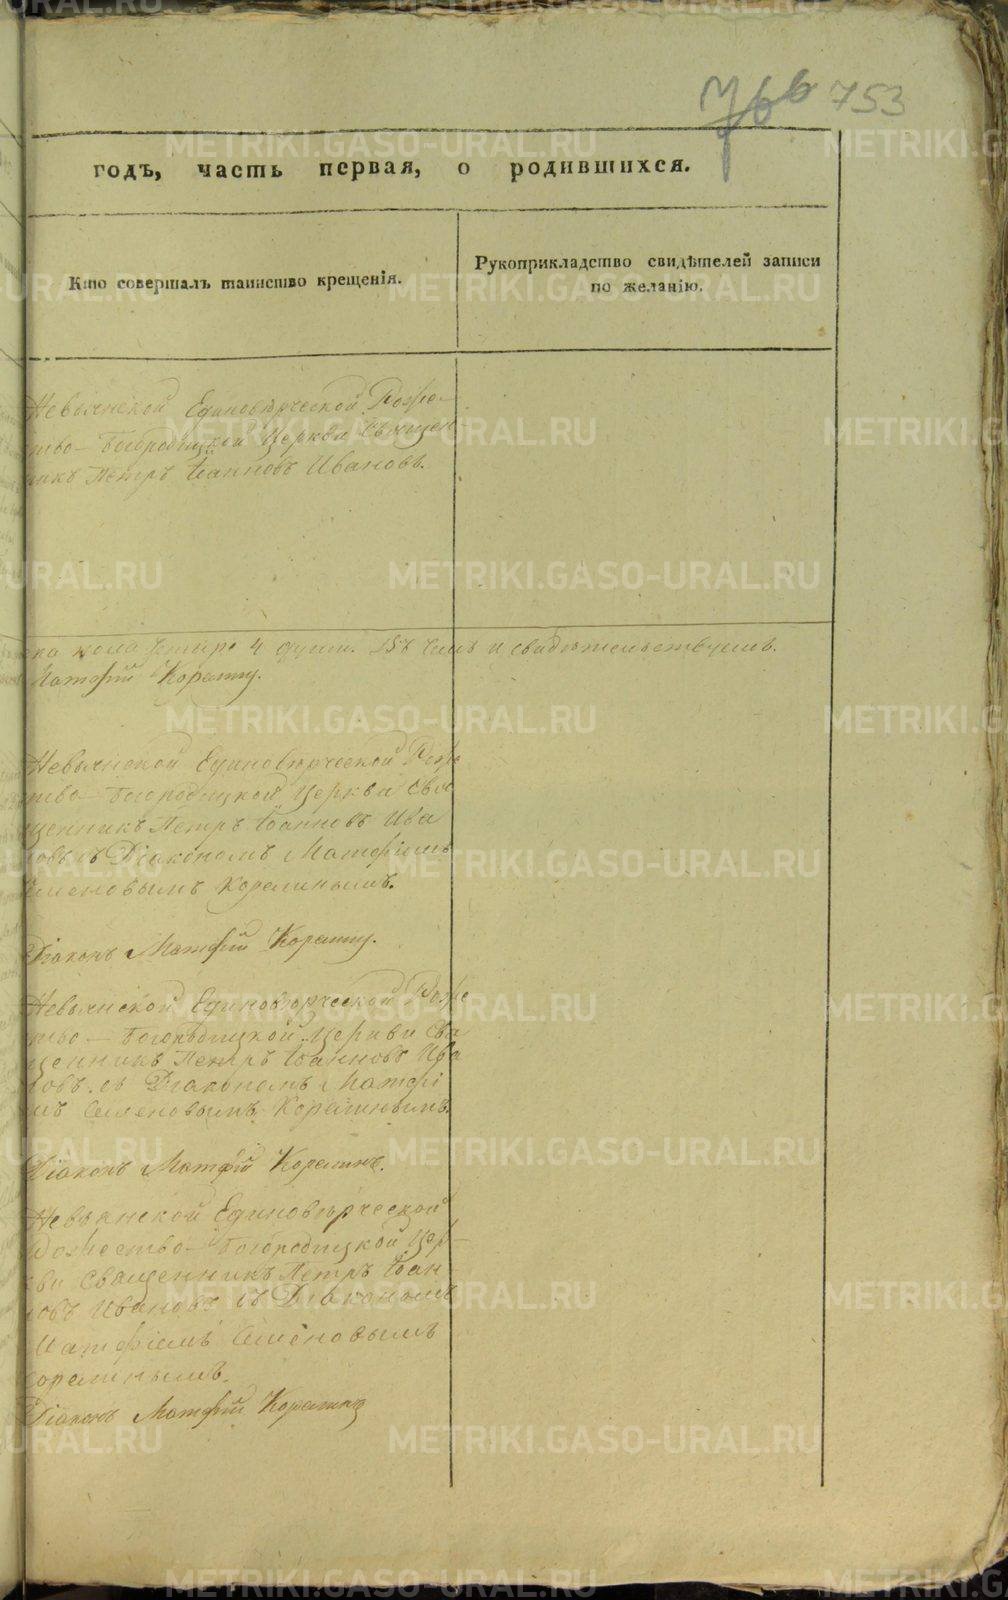 766 753
годъ, часть первая, о родившихся.
Кто совершалъ таинство крещенія.
Рукоприкладство свидѣтелей записи
по желанію.
Невьянской Единовѣрческой Рожде-
ство-Богородицкой Церкви Священ-
никъ Петръ Іоанновъ Ивановъ.
4 душъ. въ чемъ и свидѣтельствуемъ.
Матфій
Невьянской Единовѣрческой Рожде
ство-Богородицкой Церкви Свя
щенникъ Петръ Іоанновъ Ива
новъ съ Діакономъ Матфіемъ
Семеновымъ
Діаконъ Матфій
Невьянской Единовѣрческой Рожде
ство-Богородицкой Церкви Свя
щенникъ Петръ Іоанновъ Ива
новъ съ Діакономъ Матфі
емъ Семеновымъ
Діаконъ Матфій
Невьянской Единовѣрческой
Рождество-Богородицкой Цер-
кви Священникъ Петръ Іоан
новъ Ивановъ съ Діакономъ
Матфіемъ Семеновымъ
Діаконъ Матфій
METRIKI.GASO-URAL.RU